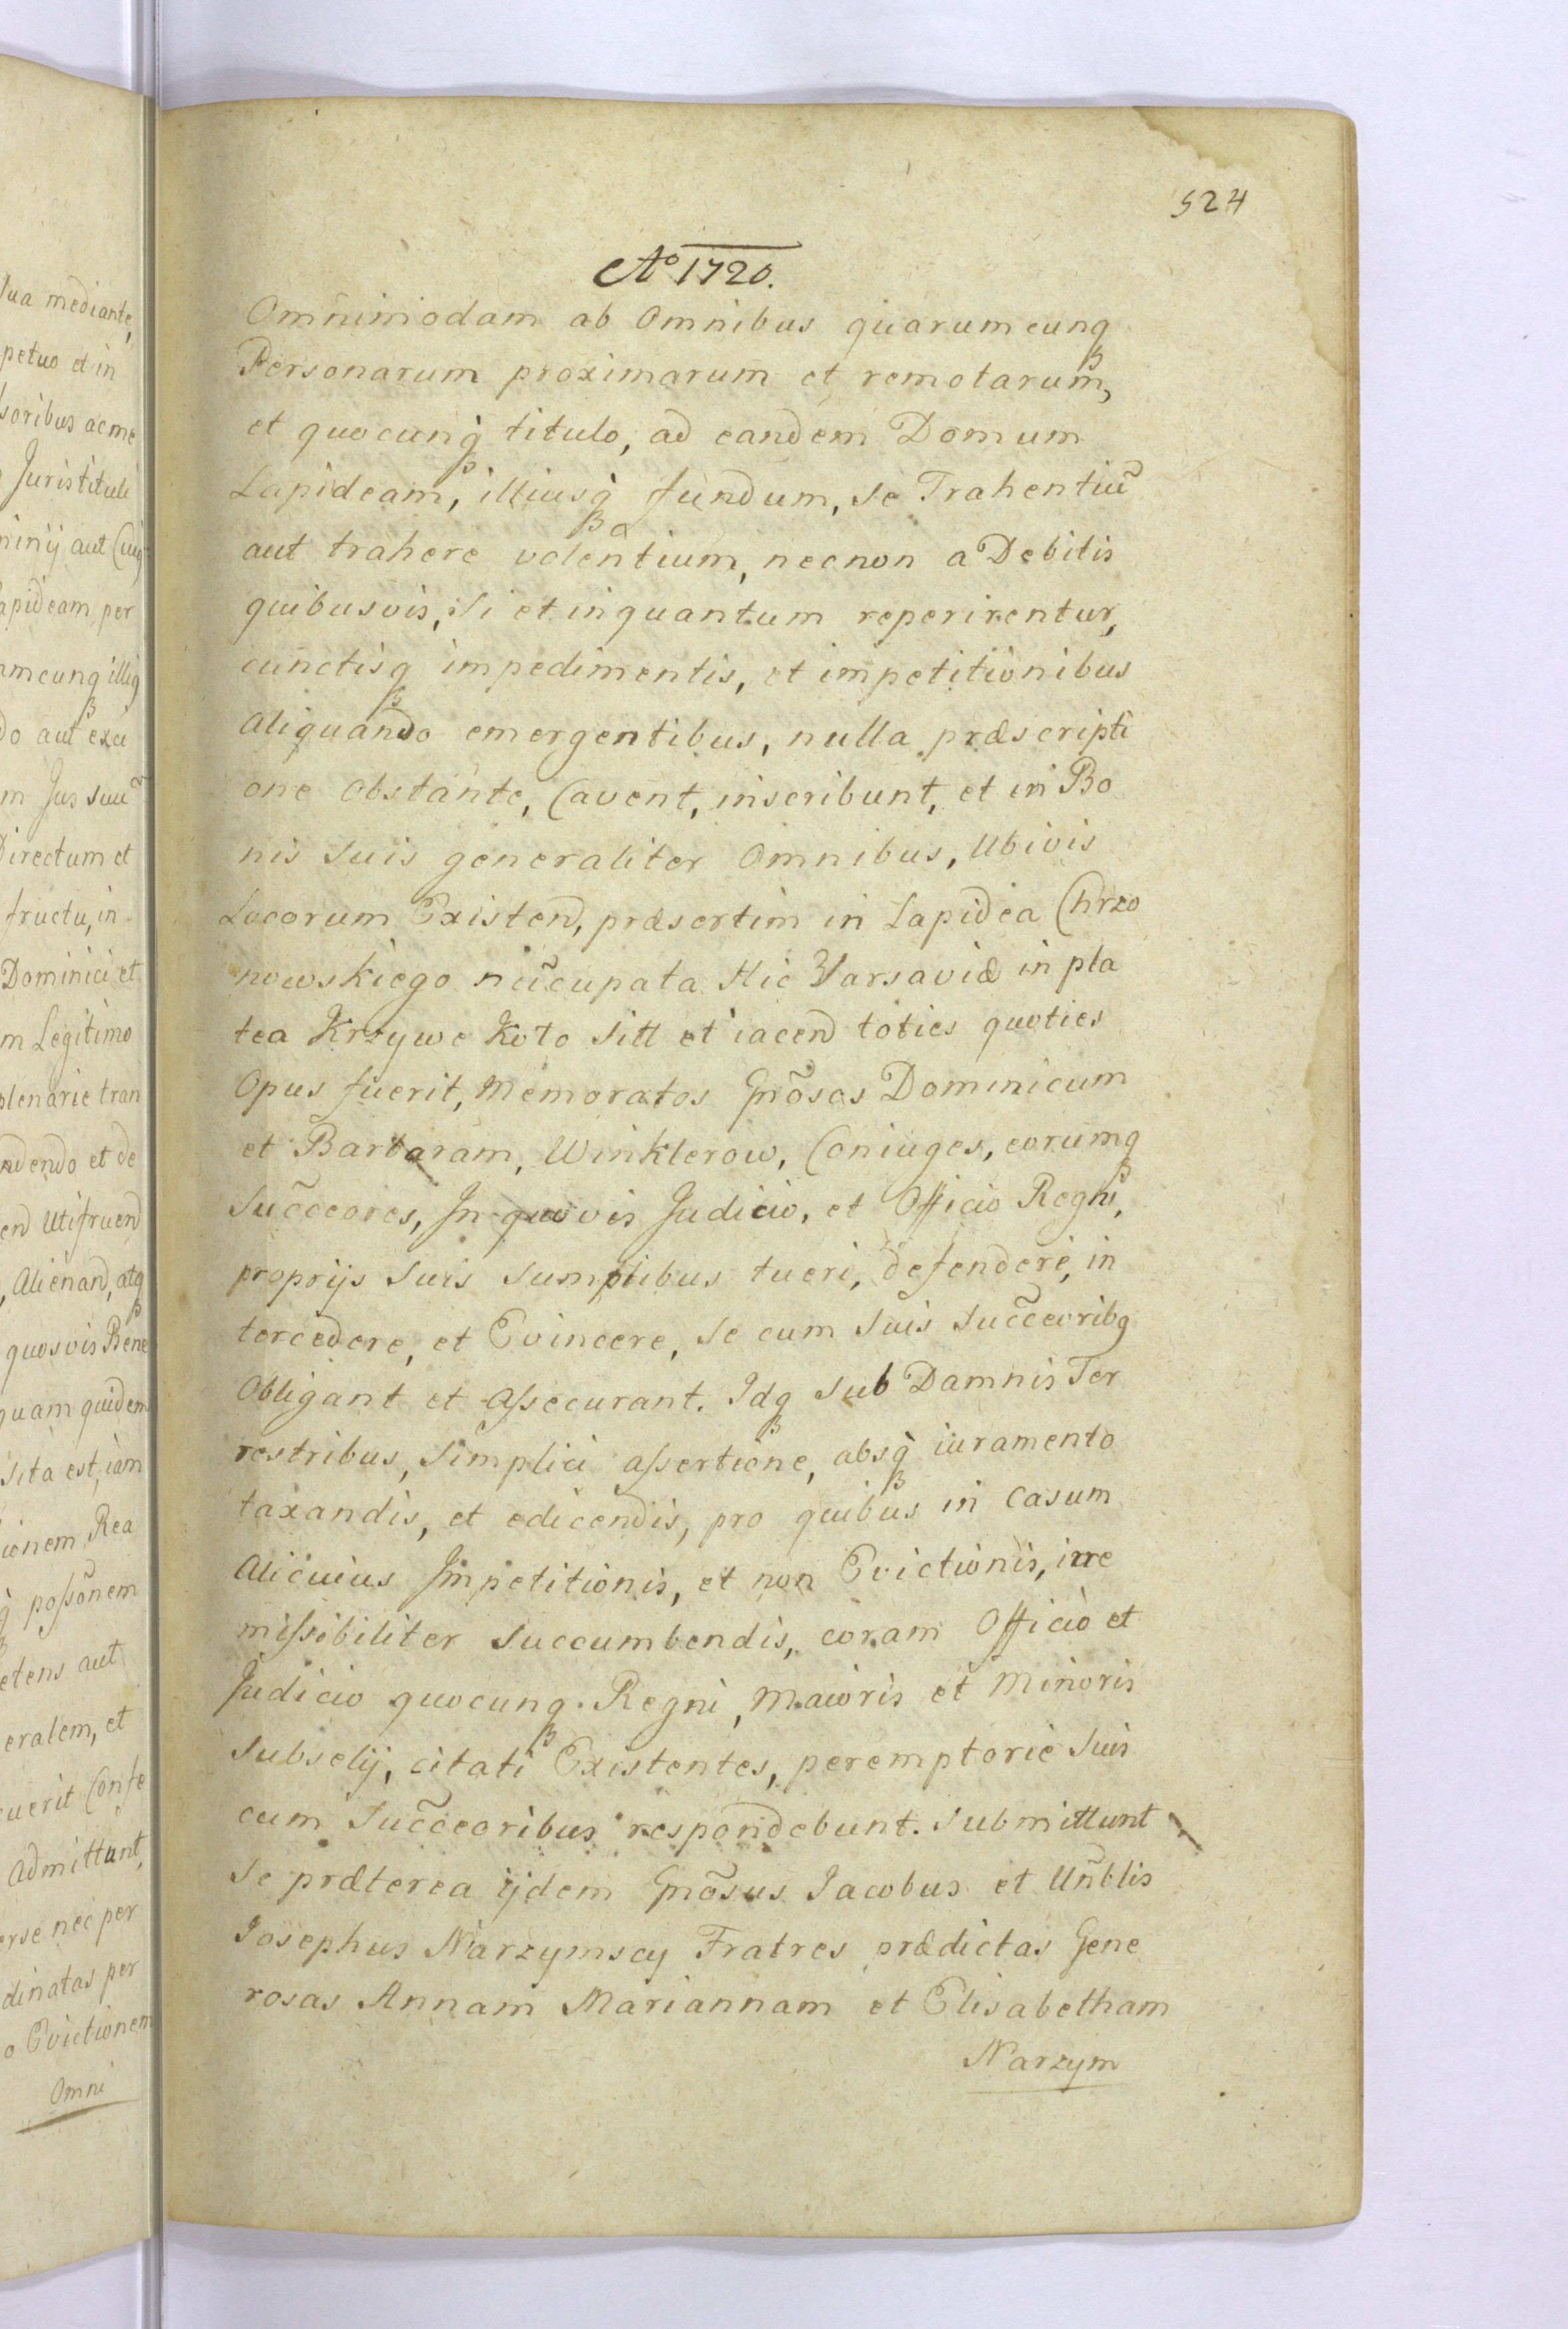 524
Aº 1720.
Omnimodam ab Omnibus quarumcunqꝫ
Personarum proximarum et remotarum,
et quocunqꝫ titulo, ad eandem Domum
Lapideam, illiusqꝫ fundum, se Trahentiũ
aut trahere volentium, necnon a Debitis
quibusvis, si et inquantum reperirentur,
cunctisqꝫ impedimentis, et impetitionibus
aliquando emergentibus, nulla præscripti
one Obstante, Cavent, inscribunt, et in Bo
nis suis generaliter Omnibus, Ubivis
Locorum Existend, præsertim in Lapidea Chrzo
nowskiego nũcupata Hic Varsaviæ in pla
tea Krzywe Koło Sitt et iacend toties quoties
Opus fuerit, Memoratos Gnõsos Dominicum
et Barbaram, Winklerow, Coniuges, eorumqꝫ
Succ̃eores, In quovis Judicio, et Officio Regni,
proprijs suis sumptibus tueri, defendere, in
tercedere, et Evincere, se cum suis Succ̃eoribq
Obligant et aſsecurant. Idqꝫ sub Damnis Ter
restribus, Simplici aſsertione, absqꝫ iuramento
taxandis, et edicendis, pro quibus in Casum
Alicuius Impetitionis, et non Evictionis, irre
miſsibiliter Succumbendis, coram Officio et
Judicio quocunqꝫ Regni, Maioris et Minoris
Subselij, citati Existentes, peremptorie suis
cum Succ̃eoribus respondebunt. Submittunt
Se præterea ijdem Gnõsus Iacobus et Uñblis
Iosephus Narzymscy Fratres prædictas Gene
rosas Annam Mariannam et Elisabetham
Narzym
sua mediante,
petuo et in
soribus ac me
Juris tituli
apideam per
mcunqꝫ illiq
do aut exci
m Jus suũ
Directum et
fructu, in
Dominici et
m Legitimo
plenarie tran
ndendo et de
end Utifruend
, Alienand, atqꝫ
quosvis Bene
quam quidem
sita est, iam
ionem Rea
poſsõnem
etens aut
eralem, et
uerit Confe
admittunt,
erse nec per
dinatas per
o Evictionem
Omni